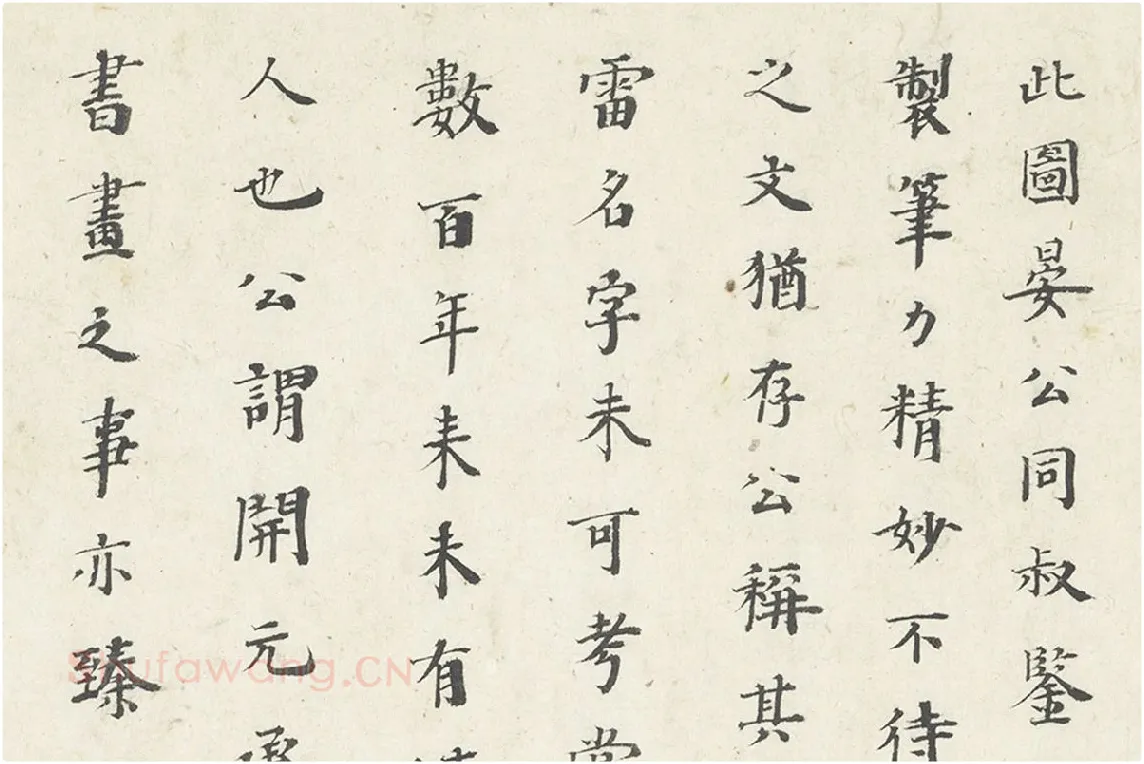 此圖晏公同叔鑒
製筆力精妙不待
之文猶存公稱其
雷名字未可考
數百年来未有
人也公謂開元
書畫之事亦臻
Shufawang.CN